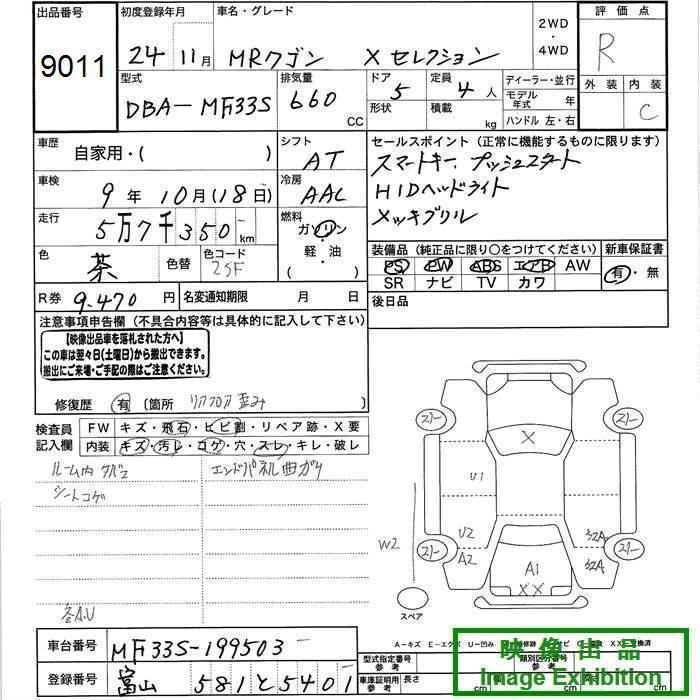 出品番号 初度登録年月 車名・グレード 2WD・4WD 評価点
9011 24年 11月 MRワゴン Xセレクション R
型式 排気量 ドア 定員 ディーラー・並行 外装 内装
DBA-MF33S 660 CC 5 4人 モデル年式 年 C
形状 積載 kg ハンドル 左・右
車歴 シフト セールスポイント (正常に機能するものに限ります)
自家用・( ) AT スマートキー、プッシュスタート
車検 冷房 HIDヘッドライト
9年 10月(18日) AAC メッキグリル
走行 燃料
5万7千350km ガソリン・軽油 ( )
装備品 (純正品に限り○をつけてください) 新車保証書
色 色替 色コード PS PW ABS エアB AW 有・無
茶 ZSF SR ナビ TV カワ
R券 9,470円 名変通知期限 月 日 後日品
注意事項申告欄 (不具合内容等は具体的に記入して下さい)
【映像出品車を落札された方へ】
この車は翌々日(土曜日)から搬出できます。
搬出にご来場・ご手配の際はご注意ください。
修復歴 有 〔箇所 リアフロア歪み
検査員記入欄 FW キズ・飛石・ヒビ割・リペア跡・X要
内装 キズ・汚レ・コゲ・穴・スレ・キレ・破レ
ルーム内タバコ エンドパネル曲ガリ
シートコゲ
各A.U
X
U1
W2 U2 A2 32A 32A
A1
XX
スペア
車台番号 MF33S-199503
A-キズ E-エクボ U-凹み XX-交換済
登録番号 富山 581 と 5401
型式指定番号 参考 類別区分番号 参考
車庫証明用 参考 長さ cm cm cm
映像出品
Image Exhibition